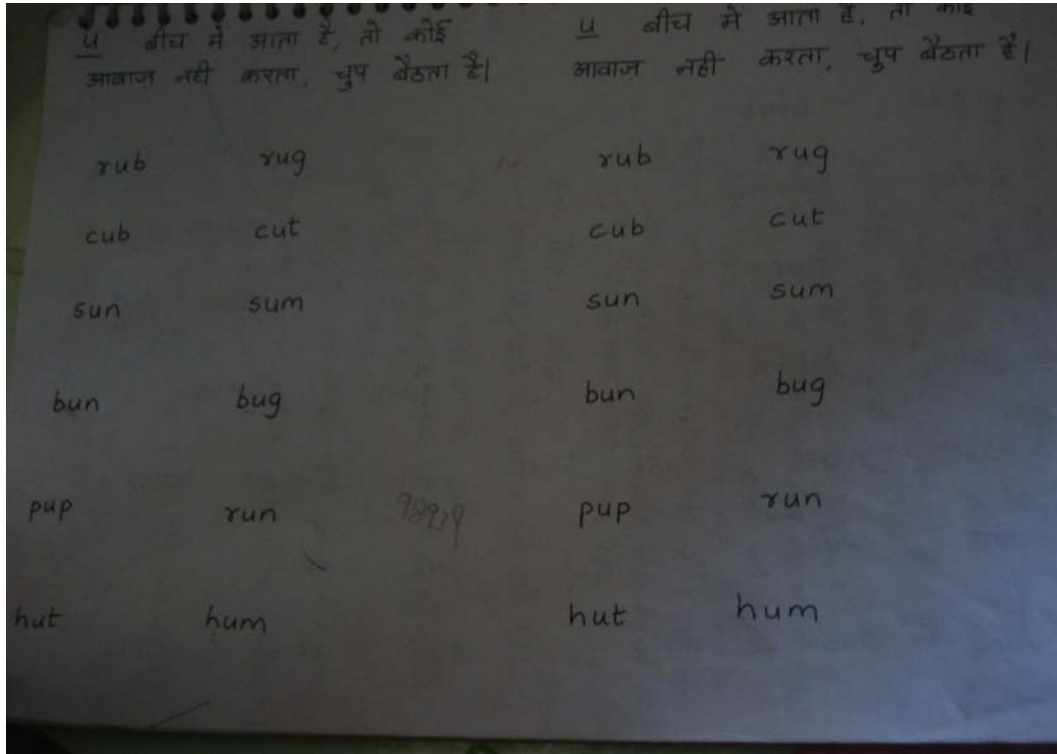 u बीच मे आता है, तो कोई
आवाज़ नही करता, चुप बैठता है।
rub rug
cub cut
sun sum
bun bug
pup run
hut hum
u बीच मे आता है, तो कोई
आवाज़ नही करता, चुप बैठता है।
rub rug
cub cut
sun sum
bun bug
pup run
hut hum